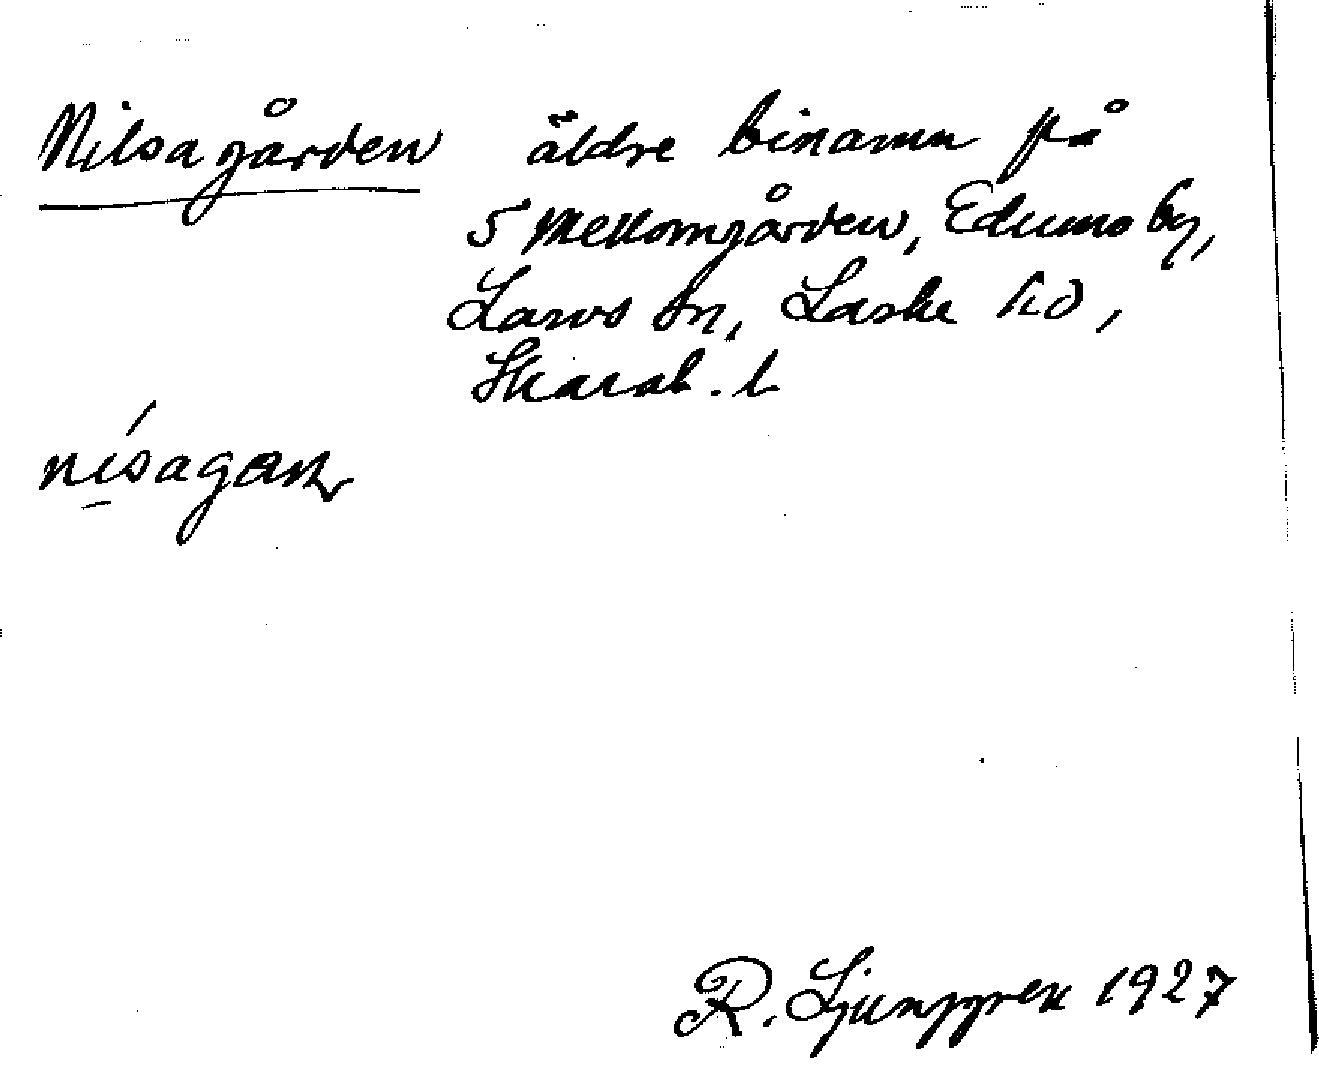 Nilsagården äldre binamn på
5 Mellomgården, Edums by,
Larvs sn, Laske hd,
Skarab. l
R. Ljunggren 1927